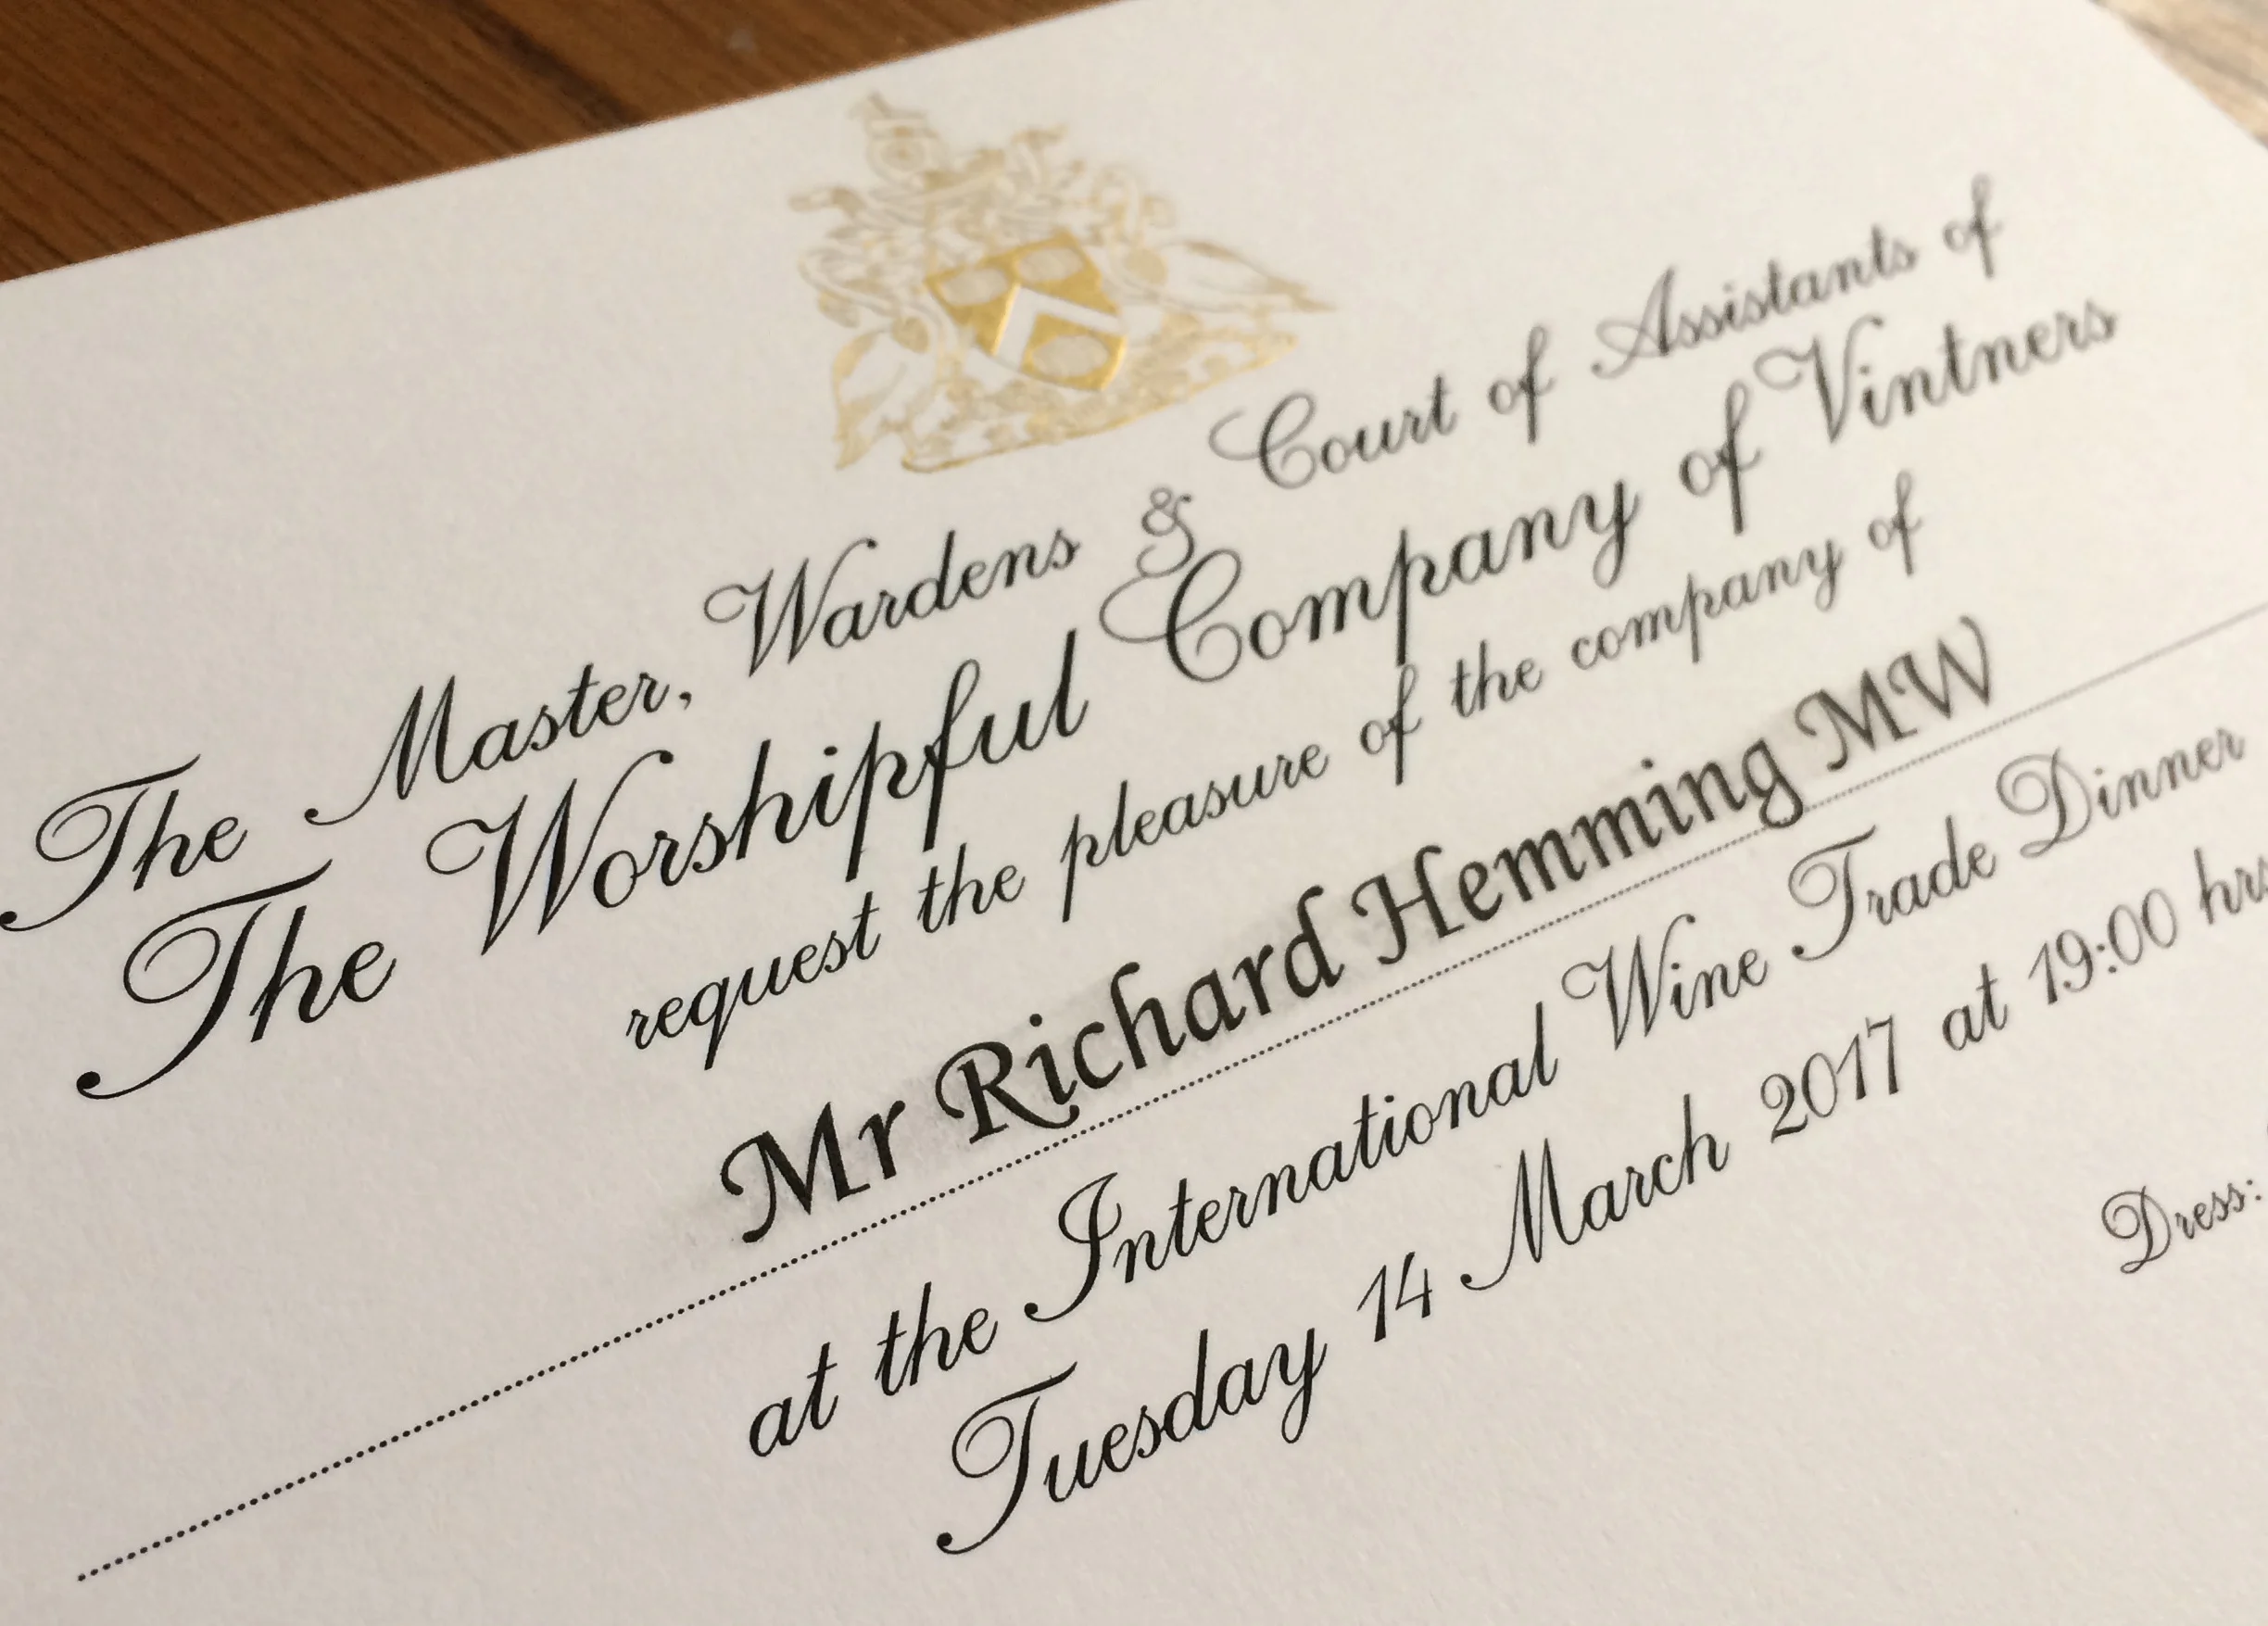 The Master, Wardens & Court of Assistants of
The Worshipful Company of Vintners
request the pleasure of the company of
Mr Richard Hemming MW
at the International Wine Trade Dinner
Tuesday 14 March 2017 at 19:00 hrs
Dress: